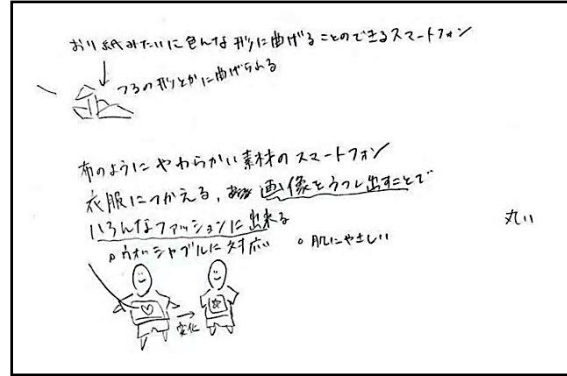 おり紙みたいに色んな形に曲げることのできるスマートフォン
つるの形とかに曲げられる
布のようにやわらかい素材のスマートフォン
衣服につかえる, 画像をうつし出すことで
いろんなファッションに出来る
。ウォッシャブルに対応 。肌にやさしい
丸い
変化